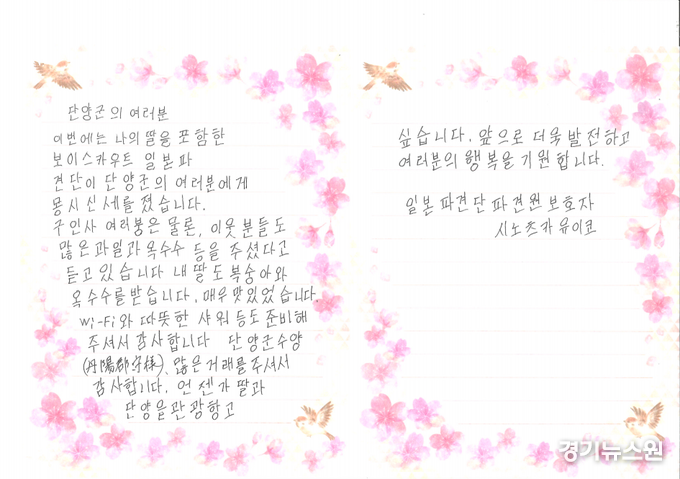 단양군의 여러분
이번에는 나의 딸을 포함한
보이스카우트 일본파
견단이 단양군의 여러분에게
몽시 신세를 졌습니다.
구인사 여러붕은 물론, 이웃분들도
많은과일과 옥수수 등을 주셨다고
듣고있습니다 내 딸도 복숭아와
옥수수를 받습니다. 매우맛있었습니다.
Wi-Fi와 따뜻한 샤워등도 준비해
주셔서 감사합니다 단양군수양
(丹陽郡守様), 많은거래를주셔서
감사합니다. 언젠가 딸과
단양을관광항고
싶습니다. 앞으로 더욱발전하고
여러분의 행복을 기원합니다.
일본 파견단 파견원 보호자
시노츠카 유이코
경기뉴스원